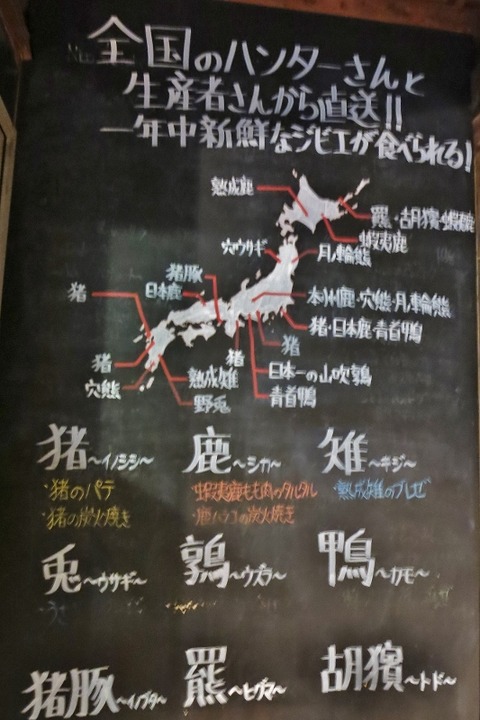 全国のハンターさんと
生産者さんから直送!!
一年中新鮮なジビエが食べられる!
熟成鹿
羆・胡獱・蝦夷鹿
蝦夷鹿
穴ウサギ
月ノ輪熊
猪豚
日本鹿
猪
本州鹿・穴熊・月ノ輪熊
猪・日本鹿・青首鴨
猪
猪
猪
熟成雉
日本一の山吹鶉
穴熊
野兎
青首鴨
猪〜イノシシ〜
鹿〜シカ〜
雉〜キジ〜
・猪のパテ
・蝦夷鹿もも肉のタルタル
・熟成雉のブレゼ
・猪の炭火焼き
・鹿ハツコの炭火焼き
兎〜ウサギ〜
鶉〜ウズラ〜
鴨〜カモ〜
猪豚〜イノブタ〜
羆〜ヒグマ〜
胡獱〜トド〜